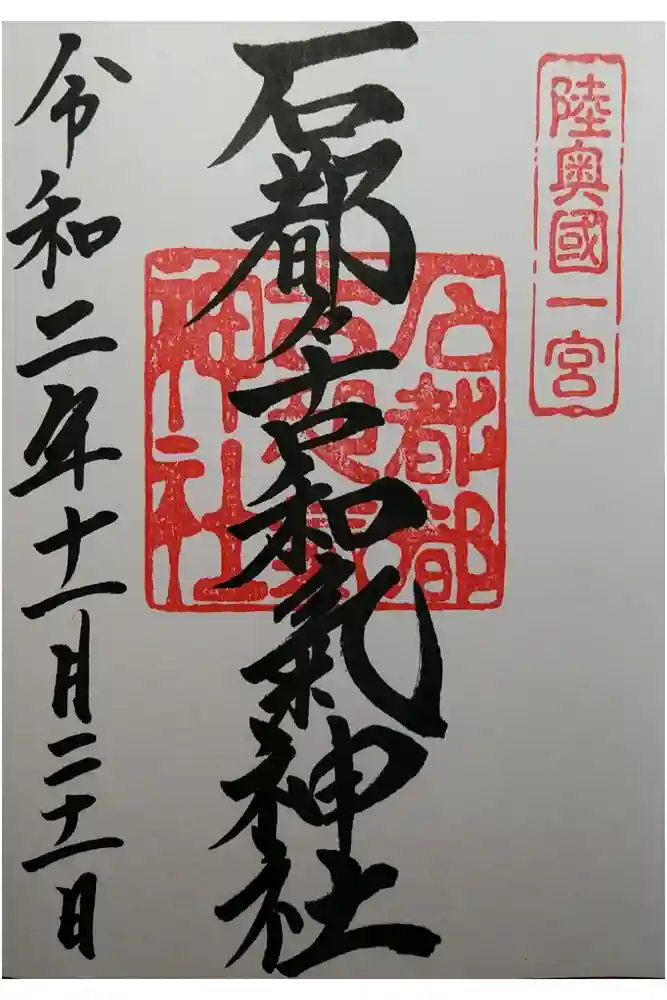 陸奥國一宮
石都々古和氣神社
石都都
古
神社
令和二年十一月二十一日